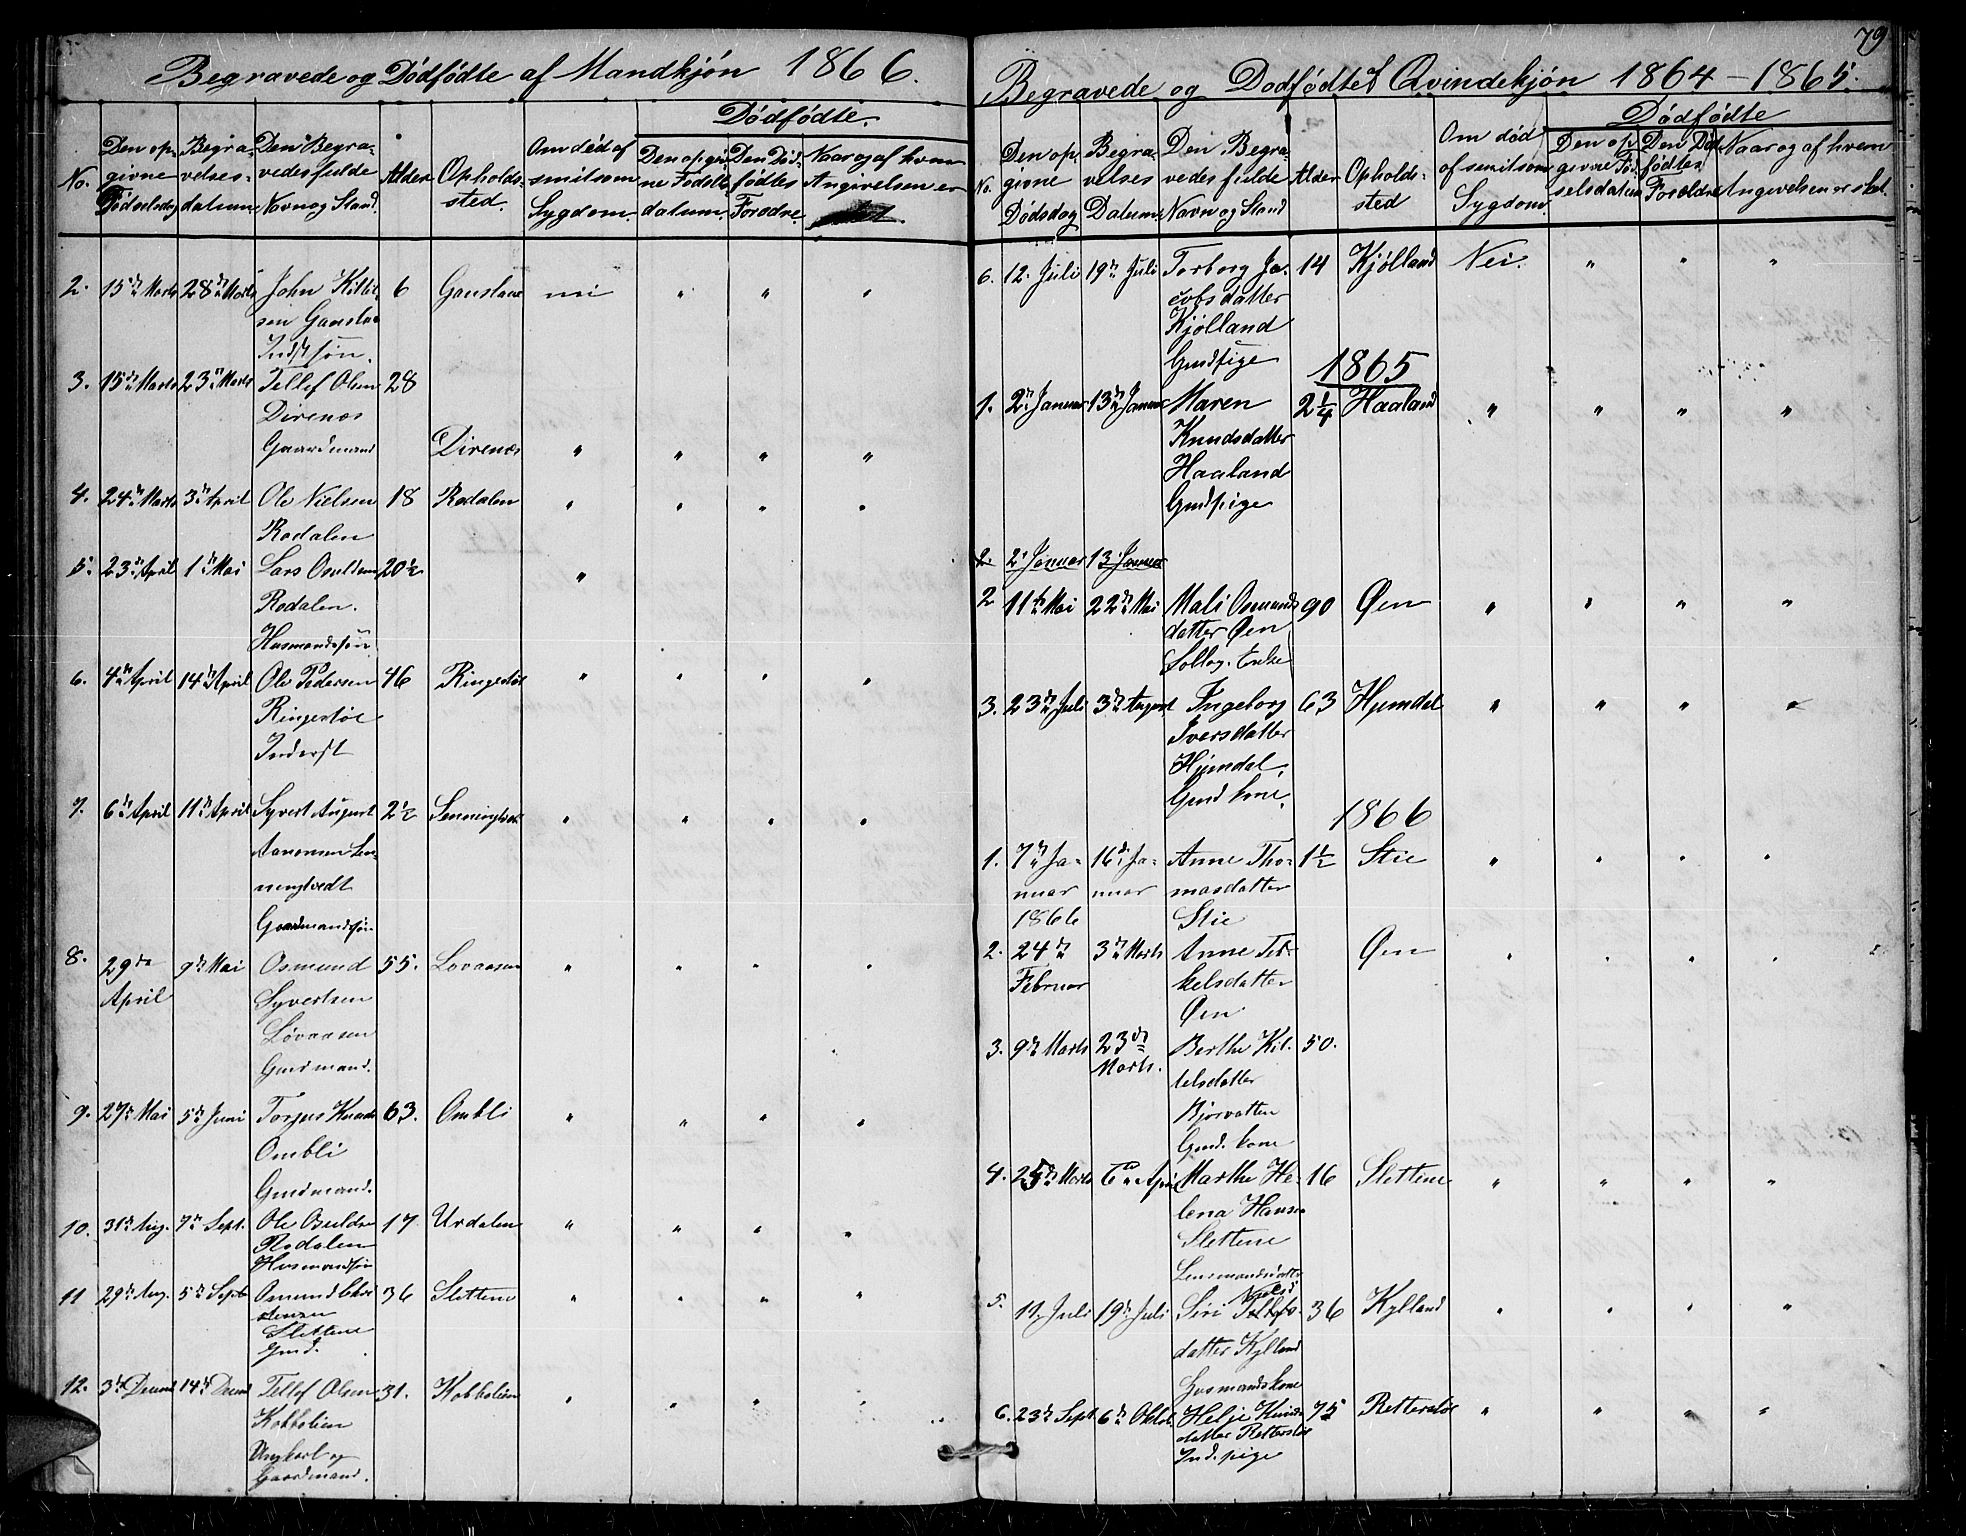 Begravede og Dødfødte af Mandkjøn 1866.
Dødfødte.
No.
Den opgivne Dødsdag
Begravelsesdatum
Den Begravedes fulde Navn og Stand.
Alder
Opholdssted.
Om død af smitsom Sygdom.
Den opgivne Fødselsdatum
Den Dødfødtes Forældre
Naar og af hvem Angivelsen er
2. 15de Marts 28de Marts John 6 nei " " "
Indst søn.
3. 15de Marts 23de Marts Tellef Olsen 28
Direnes
Gaardmand Direnes " " " "
4. 24de Marts 3de April Ole Nielsen 18 Rodalen " " " "
Rodalen
5. 23de April 1ste Mai Lars 20½ "
Rodalen.
Husmandssøn
6. 4de April 14de April Ole Pedersen 46 " " " "
Inderst
7. 6te April 11te April Syvert August 2½ " " " "
Gaardmandssøn
8. 29de April 9de Mai Osmund 55. Lovaasen " " " "
Syvertsen
Løvaasen
Gmdmand.
9. 27de Mai 5te Juni Torjus 63. Ombli " " " "
Ombli
Gmdmand.
10. 31te Aug. 7de Sept. Ole 17 Urdalen " " " "
Rodalen
Husmandssøn
11 29de Aug. 5te Septb Osmund 36 Slettene " " " "
Slettene
Gmd.
12. 3de 14de Tellef Olsen 31. Kobbelien " " " "
Kobbelien
Ungkarl og
Gaardmand.
79
Begravede og Dødfødte af Qvindekjøn 1864-1865.
Dødfødte
No.
Den opgivne Dødsdag
Begravelses Datum
Den Begravedes fulde Navn og Stand
Alder
Opholdssted
Om død af smitsom Sygdom.
Den opgivne Fødselsdatum
Den Dødfødtes Forældre
Naar og af hvem Angivelsen er sket.
6. 12. Juli 19de Juli Torborg Ja- 14 Kjølland Nei. " " "
cobsdatter
Kjølland
Gmdpige
1865
1. 2de Januar 13de Januar Maren 2¼ Haaland " " " "
Knudsdatter
Haaland
Gmdpige
2. 2. Januar 13. Januar
2 11te Mai 22de Mai Mali Osmunds 90 Øen " " " "
datter Øen
Enke
3. 23de Juli 3de August Ingeborg 63 Hjemdal " " " "
Iversdatter
Hjemdal.
Gmd kone.
1866
1. 7de Ja- 16de Ja- Anne Tho- 1½ Stie " " " "
nuar nuar masdatter
1866 Stie
2. 24de 3de Marts Anne Ter- Øen " " " "
Februar kelsdatter
Øen
3. 9de Marts 23de Berthe Kit- 50.
Marts. telsdatter
Bjorvatten
Gmd. kone
4. 25de Marts 6te April Marthe He- 16 Slettene " " " "
lena Hansen
Slettene
Lensmandsdatter
Niels
5. 11. Juli 19de Juli Siri Tellefs 36 Kylland " " " "
datter Kylland
Husmandskone
6. 23de Sept. 6te Oktob. Helje 75 Retterstøl " " " "
datter Retterstøl
Ind. pige